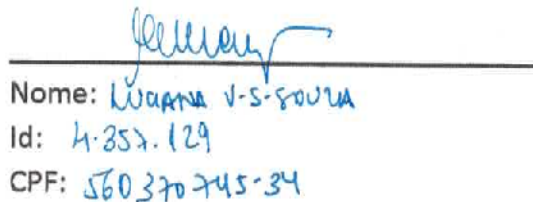 Nome: LUCIANA V-S-SOUZA
Id: 4.357.129
CPF: 560370745-34